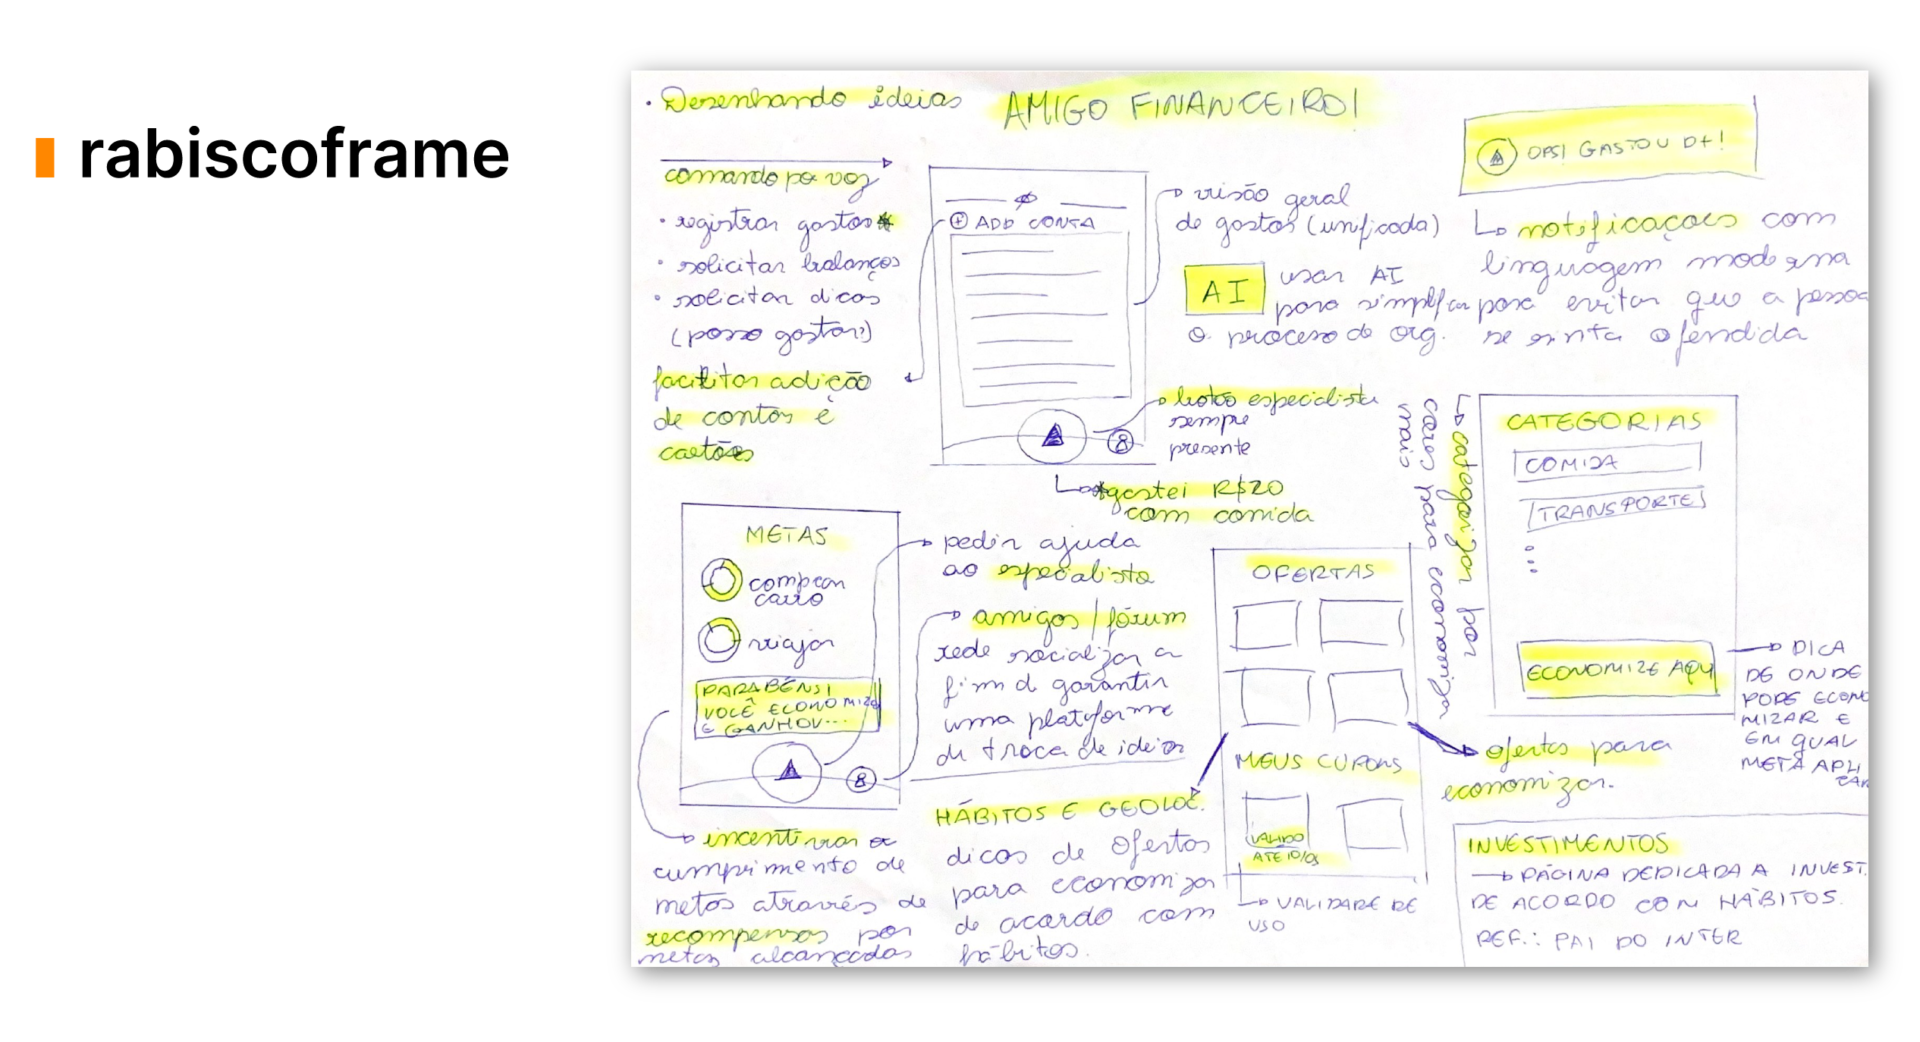 rabiscoframe
• Desenhando ideias
AMIGO FINANCEIRO!
comando por voz
• registrar gastos*
• solicitar balanços
• solicitar dicas
(posso gastar?)
facilitar adição
de contas e
cartões
ADD CONTA
visão geral
de gastos (unificada)
AI
usar AI
para simplificar
o processo de org.
botão especialista
sempre
presente
*gastei R$20
com comida
OPS! GASTOU D+!
notificações com
linguagem moderna
para evitar que a pessoa
se sinta ofendida
CATEGORIAS
COMIDA
TRANSPORTE
...
ECONOMIZE AQUI
categorizar por
caros para economizar
mais
DICA
DE ONDE
PODE ECONO
MIZAR E
EM QUAL
META APLI
CAR
METAS
comprar
carro
viajar
PARABÉNS!
VOCÊ ECONOMIZOU
E GANHOU...
pedir ajuda
ao especialista
amigos/fórum
rede socializar a
fim d garantir
uma plataforma
de troca de ideias
incentivar o
cumprimento de
metas através de
recompensas por
metas alcançadas
HÁBITOS E GEOLOC.
dicas de ofertas
para economizar
de acordo com
hábitos.
OFERTAS
MEUS CUPONS
VALIDO
ATÉ 10/03
VALIDADE DE
USO
ofertas para
economizar.
INVESTIMENTOS
PÁGINA DEDICADA A INVEST.
DE ACORDO COM HÁBITOS.
REF.: PAI DO INTER